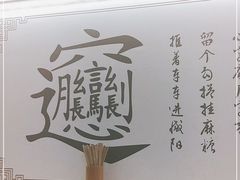 留个勾搭挂麻糖
推着车车进咸阳
𰻞